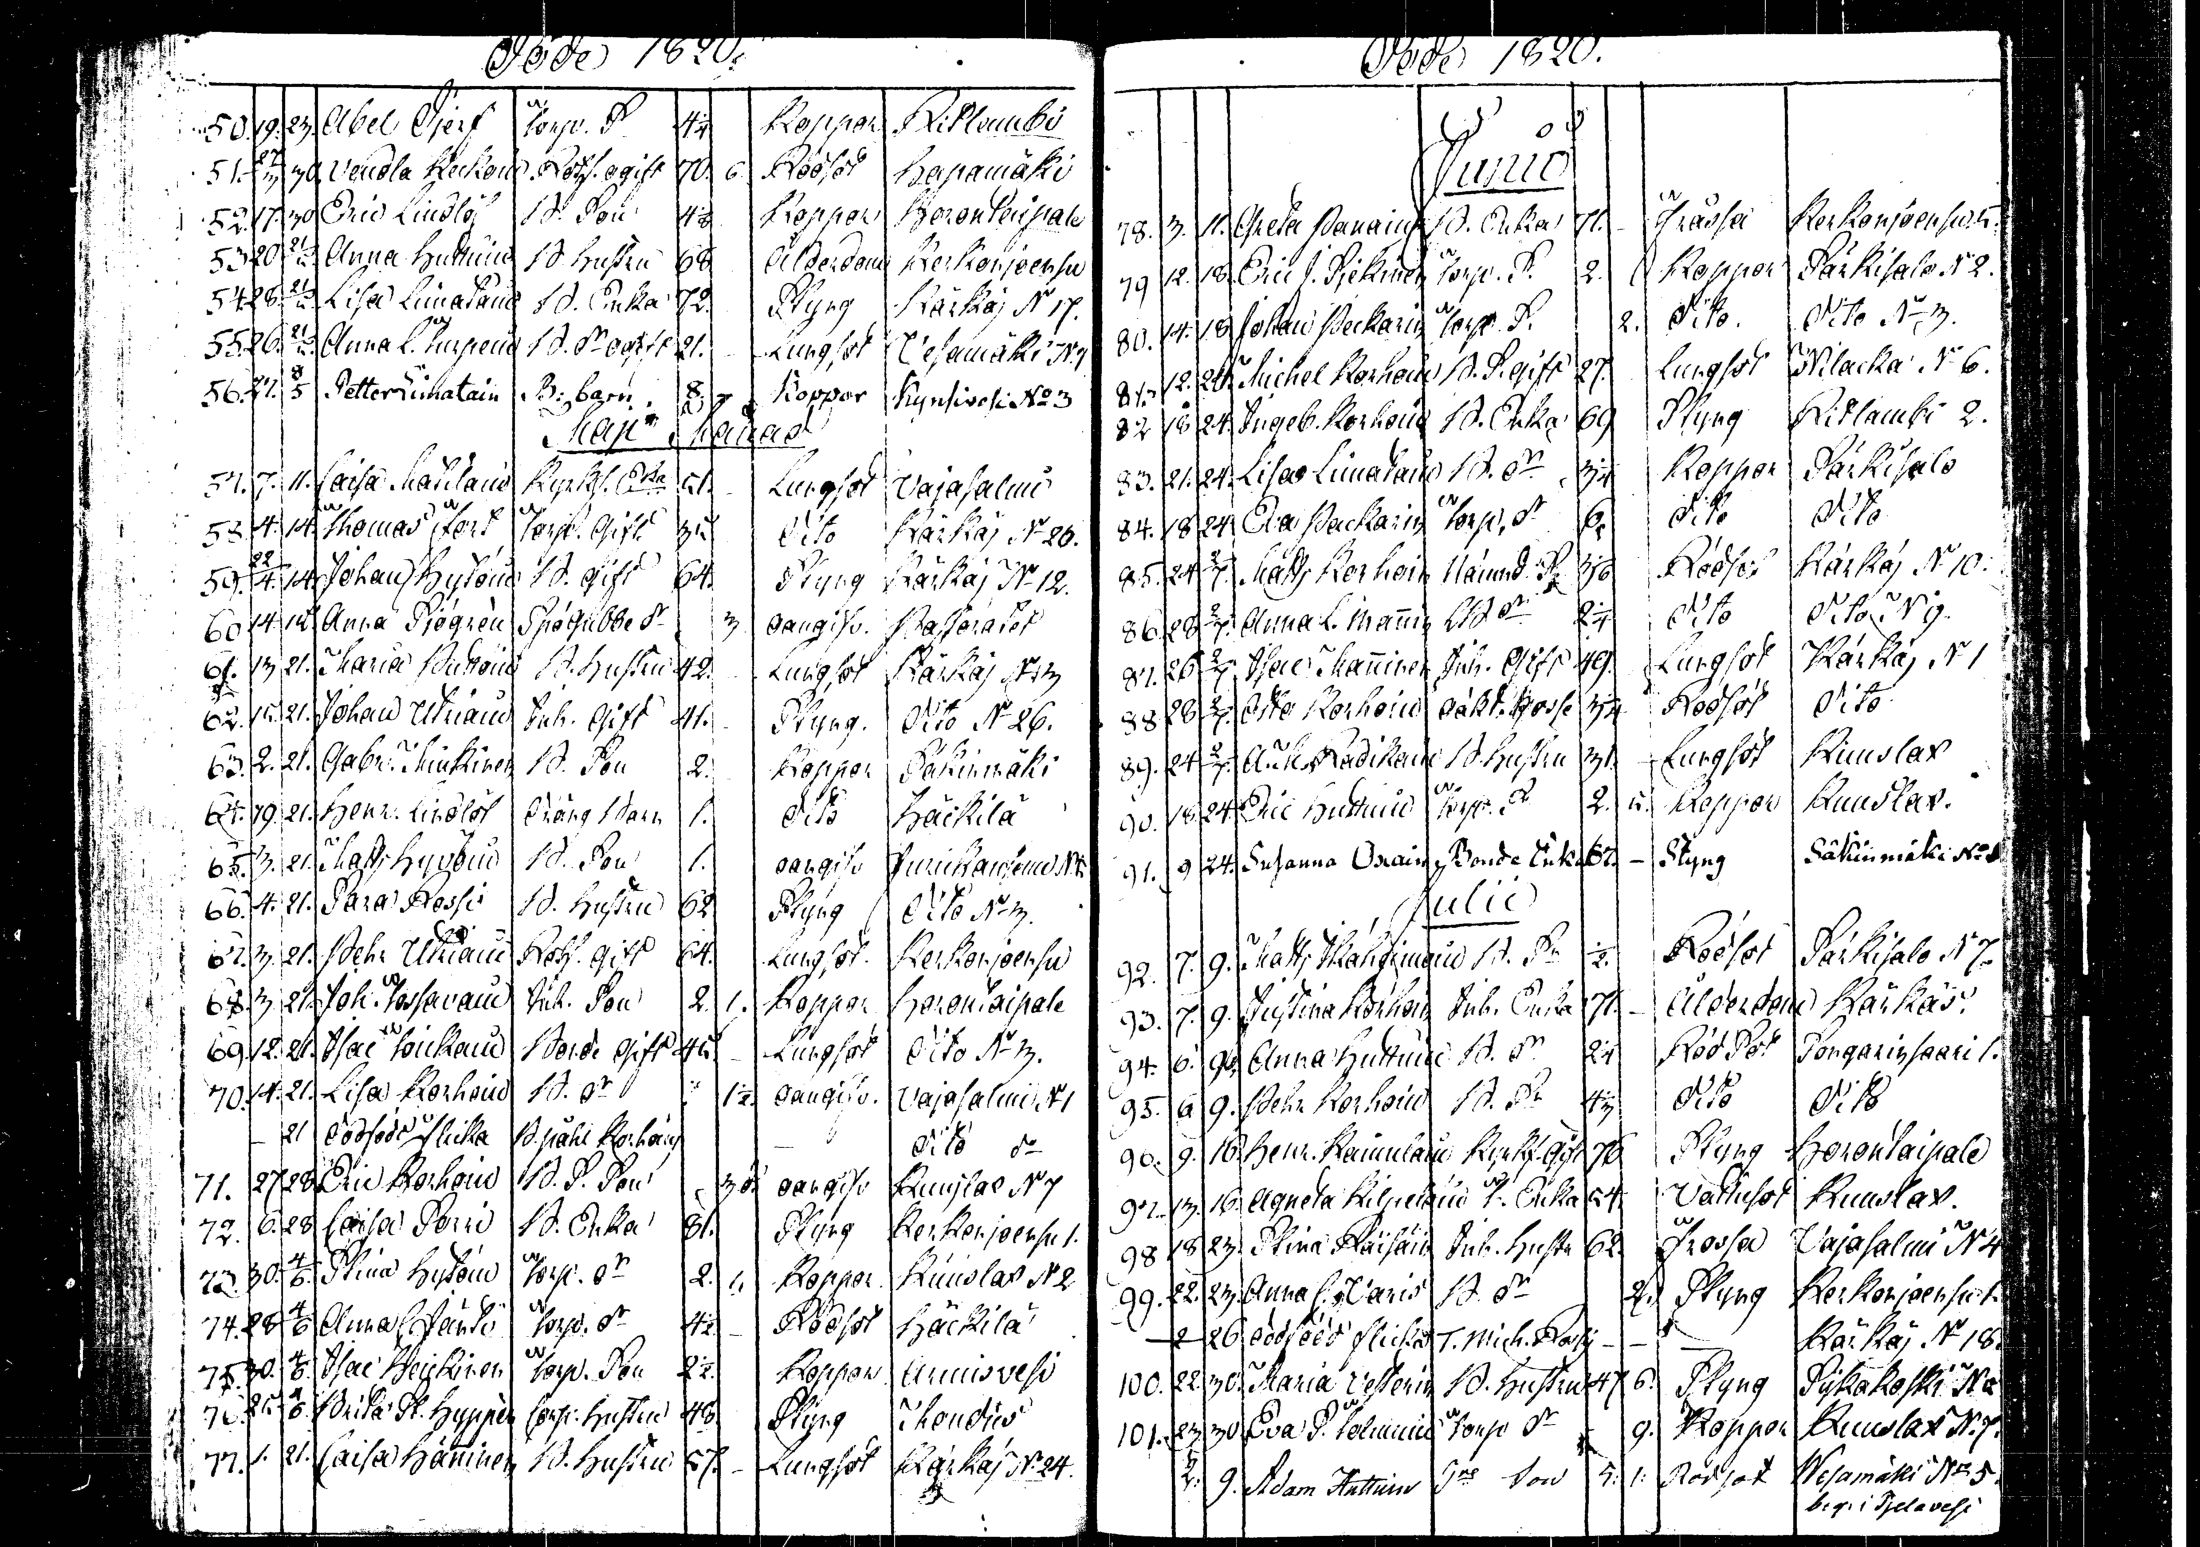 Döde 1820.
50. 19. 23. Abel Djerf Torp. S. 4 1/4 Koppor Ritlambi
51. 27/3 30. Vendla Roth. ogift 70. 6. Rödsot Hapamäki
52. 17. 30 Eric Lindlöf B. Son 4 1/2 Koppor Horontaipale
53 20 21/5 Anna Huttuin B. Hustru 68 Ålderdom Kerkonjoensu
54 28. 21/5 Lisa Limatain B. Enka 72. Styng Kärkäj No 17.
55 26. 21/5 Anna L. B. Dr ogift 21. - Lungsot Vesamäki N 7
56. 27. 8/5 Petter Limatain B: barn 8. Koppor Kynsivesi No 3
Maji Månad
57. 7. 11. Caisa Matilain Kyrkf. Enka 51. - Lungsot Vajasalmi
58. 4. 14. Thomas Tort Torp. Gift 35 Dito Kärkäj No 26.
59. 22/4. 14. Johan Hytöin B. Gift 64. Styng Kärkäj No 12.
60 14. 15 Anna Sjögren Spögubbe Dr 3 oangifv. Pastoratet
61. 13 21. Maria Puttoin B. Hustru 42. - Lungsot Kärkäj No 13
62. 15. 21. Johan Utriain Inh. Gift 41. - Styng. Dito No 26.
63. 2. 21. Gabr. Minkinen B. Son 2. Koppor Säkinmäki
64. 19. 21. Henr. Lindlöf Dräng Barn 1. Dito Häckilä
65. 3. 21. Matts Hyvöin B. Son 1. oangifv
66. 4. 21. Sara Rossi B. Hustru 62 Styng Dito No 3.
67. 3. 21. Pehr Utriain Roth. Gift 64. Lungsot. Kerkonjoensu
68. 3 21. Joh. Tossavain Inh. Son 2. 1. Koppor Horontaipale
69. 12. 21. Isac Toickain Bonde Gift 45. - Lungsot Dito No 3.
70. 14. 21. Lisa Korhoin B. Dr 1 1/2. oangifv. Vajasalmi N 1
- 21 Dödfödt flicka B. Påhl Korhoin - Dito do
71. 27 28 Eric Korhoin B. S. Son oangifv Kunslax N 7
72. 6. 28 Caisa Sorri B. Enka 81. Styng Kerkonjoensu 1.
73. 30. 4/6. Stina Hytöin Torp. Dr 2. 1. Koppor Kunslax No 2
74. 28 4/6 Anna C. Jänti Torp. Dr 4 1/2 - Rödsot Häckilä
75 30. 4/6. Isac Heickinen Torp. Son 2 1/2. Koppor Armisvesi
76. 25. 4/6. Brita St. Hyppen Corp. Hustru 48. Styng
77. 1. 21. Caisa Hänninen B. Hustru 57. - Lungsot Kärkäj No 24.
Döde 1820.
Junii
78. 3. 11. Greta Panain B. Enka 71. - Trässa Kerkonjoensu 5.
79 12. 18. Eric J. Tjekinen Torp. S. 2. Koppor Särkisalo N 2.
80. 14. 18 Johan Peckarin Torp. S. 2. Dito. Dito No 3.
81. 12. 24. Michel Korhoin B. S. Gift 27. Lungsot Nilacka No 6.
82 18 24. Ingeb. Korhoin B. Enka 69 Styng Ritlambi 2.
83. 21. 24. Lisa Limatain B. Dr 3 1/4 Koppor Särkisalo
84. 18 24 Eva Packarin Torp. Dr 6. Dito Dito
85. 24 2/7. Matts Korhoin Nämnd. S. 3 1/6 Rödsot Kärkäj No 10.
86. 28 2/7. Anna L. Mannin B. Dr 2 1/4 Dito Dito N 9.
87. 26 2/7. Isac Manninen Inh. Gift 49. Lungsot Kärkäj No 1
88 28 2/7. Otto Korhoin oäkt. Gosse 3 1/4 Rödsot Dito
89. 24 2/7. A. U. Radikain B. Hustru 31. - Lungsot Kunslax
90. 18. 24. Eric Huttuin Torp. S. 2. 5. Koppor Kunslax.
91. 9 24. Susanna Oxain Bonde Enka 67. - Styng Säkinmäki No 8
Julii
92. 7. 9. Matts B. Sn 1/2. Rödsot Särkisalo N 7.
93. 7. 9. Justina Korhoin Inh. Enka 71. - Ålderdom Kärkäis.
94. 6. 9. Anna Huttuin B. Dr 2 1/4 Röd Sot Pongarinsaari 1.
95. 6 9. Pehr Korhoin B. Sn 4 1/3 Dito Dito
96. 9. 16. Henr. Kainulain Kyrkf. Gift 76 Styng Horontaipale
97. 13. 16. Agneta Kilpeläin T. Enka 54. Vattusot Kunslax.
98 18 23. Stina Räisäin Inh. Hustr 62. Trossa Vajasalmi N 4
99. 22. 23. Anna C. Varis B. Dr 2. Styng Kerkonjoensu 1.
- 2 26. dödfödd flicka T. Mich. Rossi - - - Kärkäj No 18.
100. 22. 30. Maria Vesterin B. Hustru 47 6. Styng Sykäkoski No 2
101. 23. 30. Eva S. Tolmuin Torp Dr 9. Koppor Kunslax N. 7.
2. 9. Adam Huttuin Son 5. 1. Rödsot Wesamäki No 5.
begr. i Pjelavesi